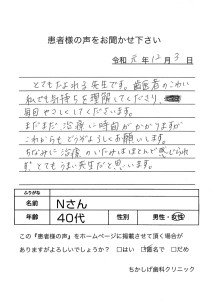 患者様の声をお聞かせ下さい
令和 元 年 12 月 3 日
とてもたよれる先生です。歯医者のこわい
私でも気持ちを理解してくださり
まだまだ治療に時間がかかりますが
これからもどうぞよろしくお願いします。
ちなみに治療のいたみはほとんど感じられ
ずとてもうまい先生だと思います。
ふりがな
名前 Nさん
年齢 40代 性別 男性・女性
この『患者様の声』をホームページに掲載させて頂く場合が
ありますがよろしいでしょうか? □はい ☑匿名で □だめ
ちかしげ歯科クリニック